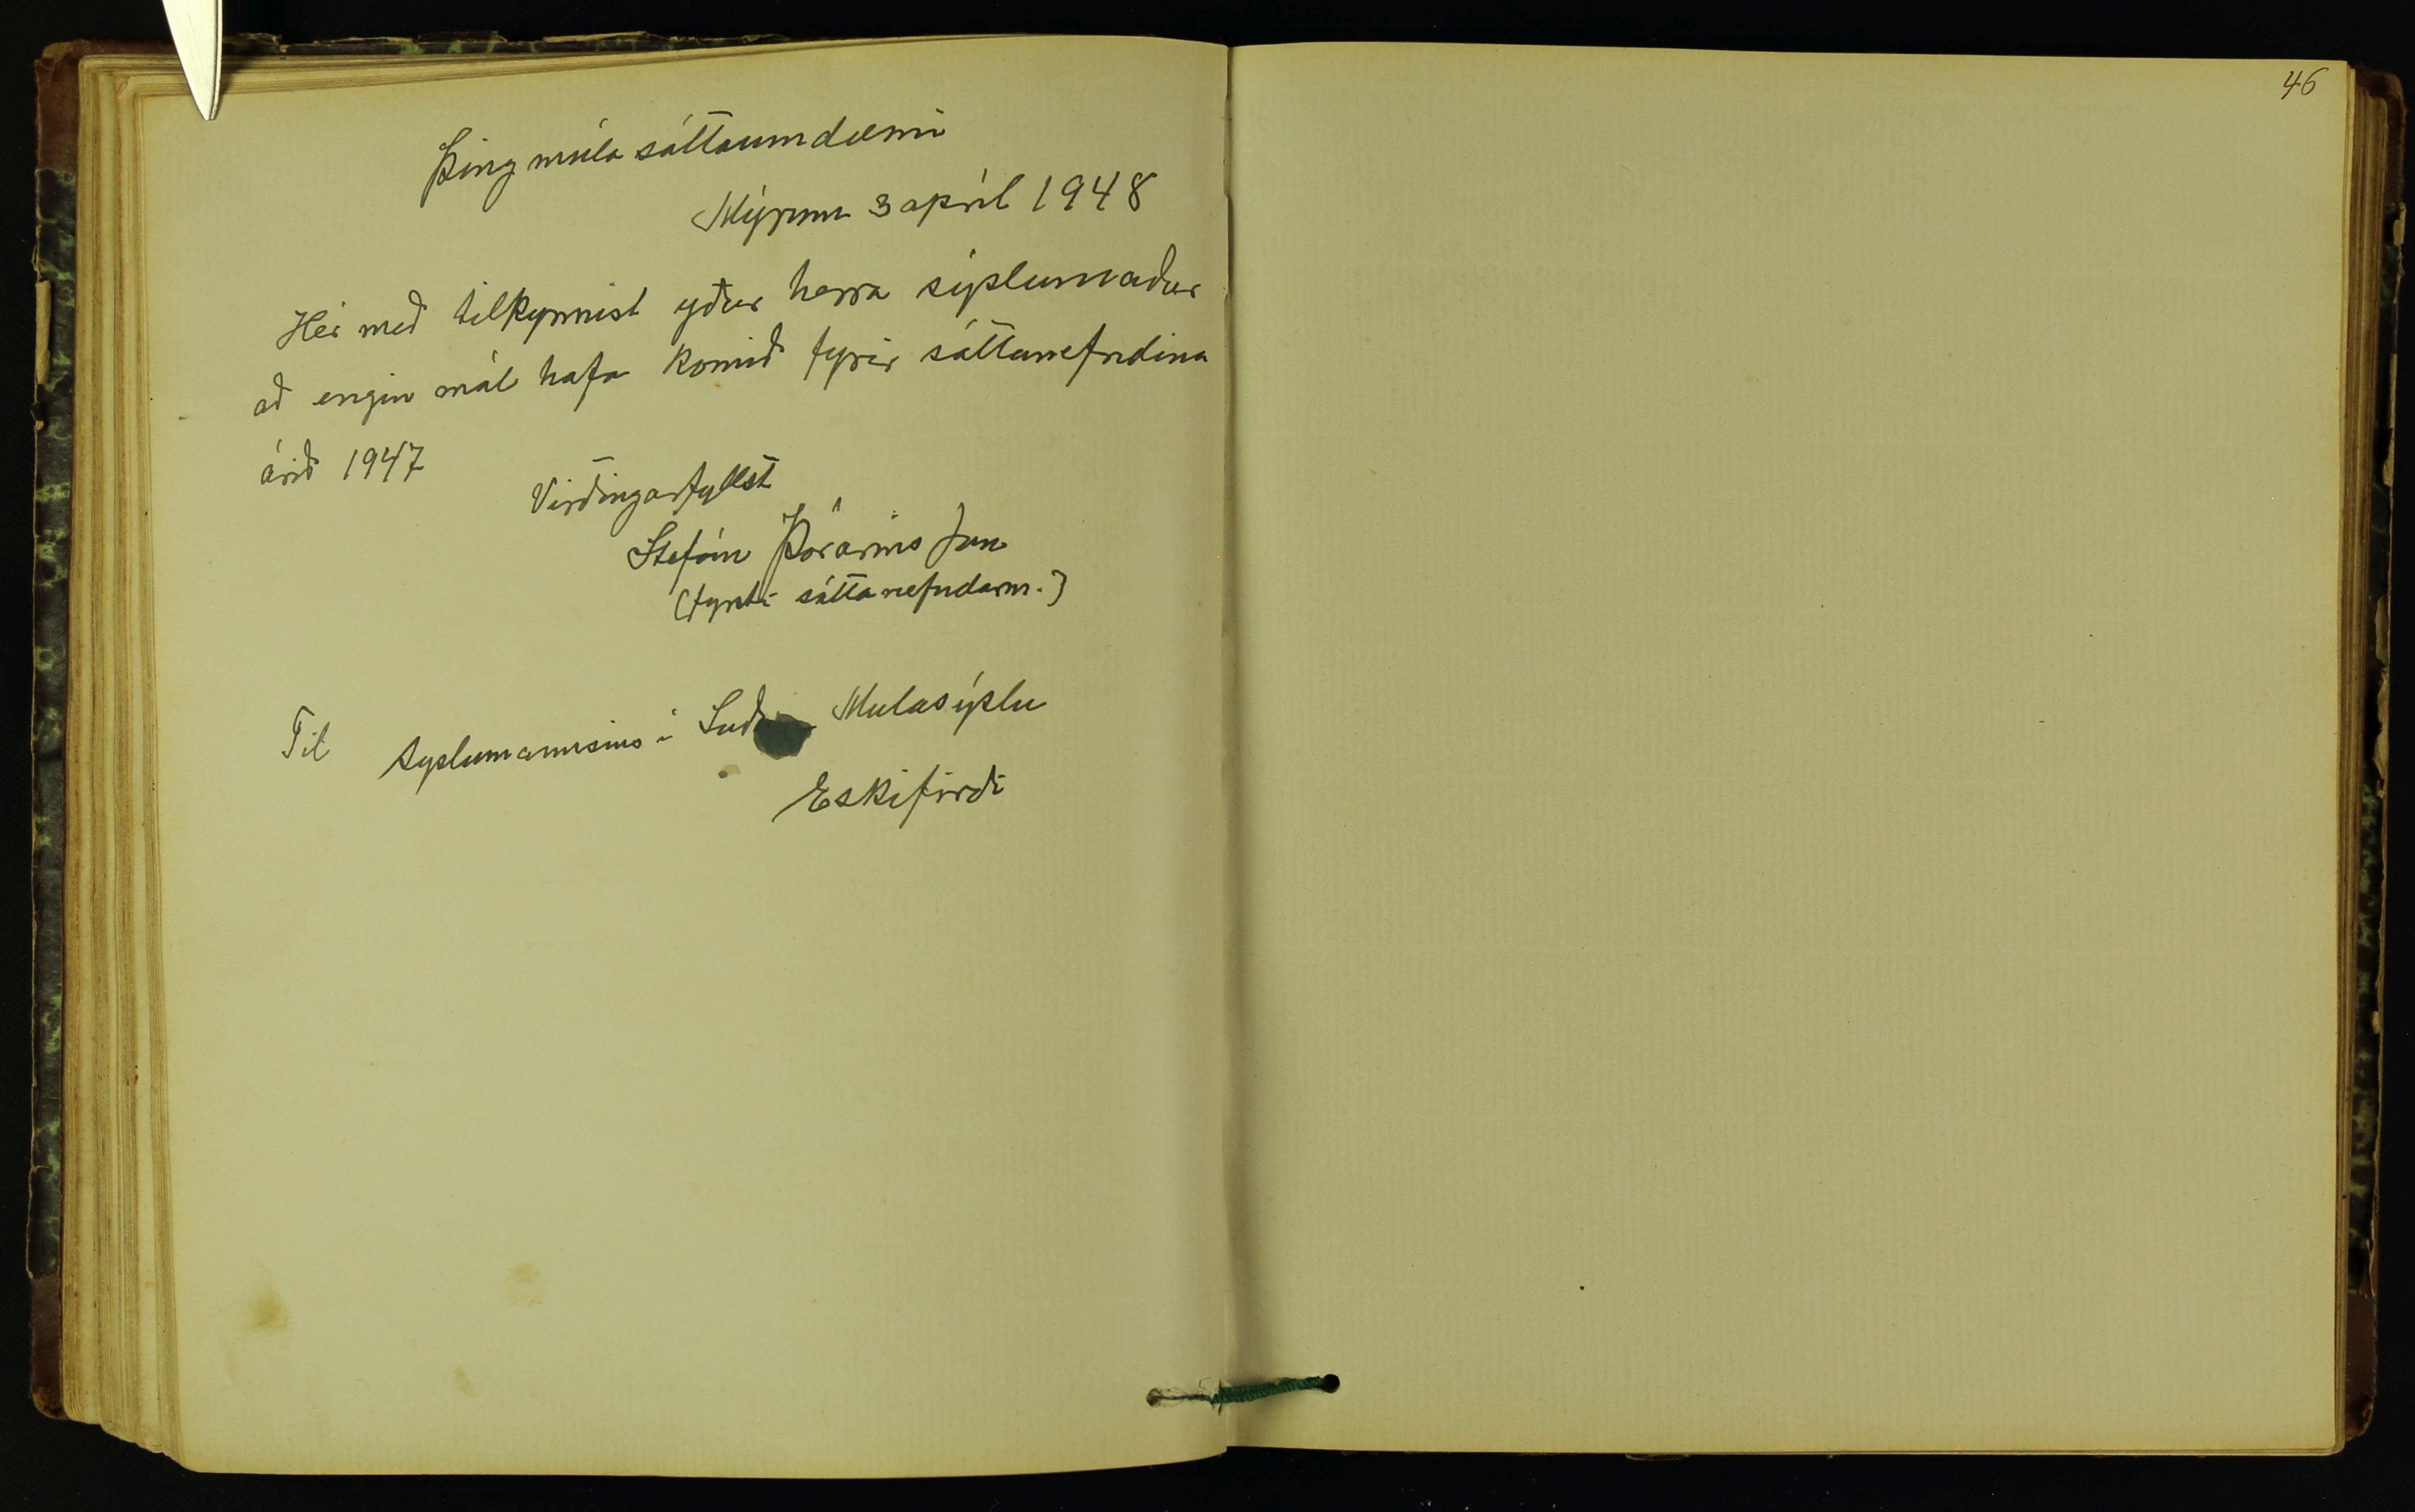 Þingmúla sáttaumdæmi
Mýrum 3 apríl 1948
Hér með tilkynnist yður herra sýslumaður
að engin mál hafa komið fyrir sáttanefndina
árið 1947
Virðingarfyllst
Stefán Þórarinsson
(fyrsti sáttanefndarm.)
Til sýslumannsins í Suður Mulasýslu
Eskifirði
46